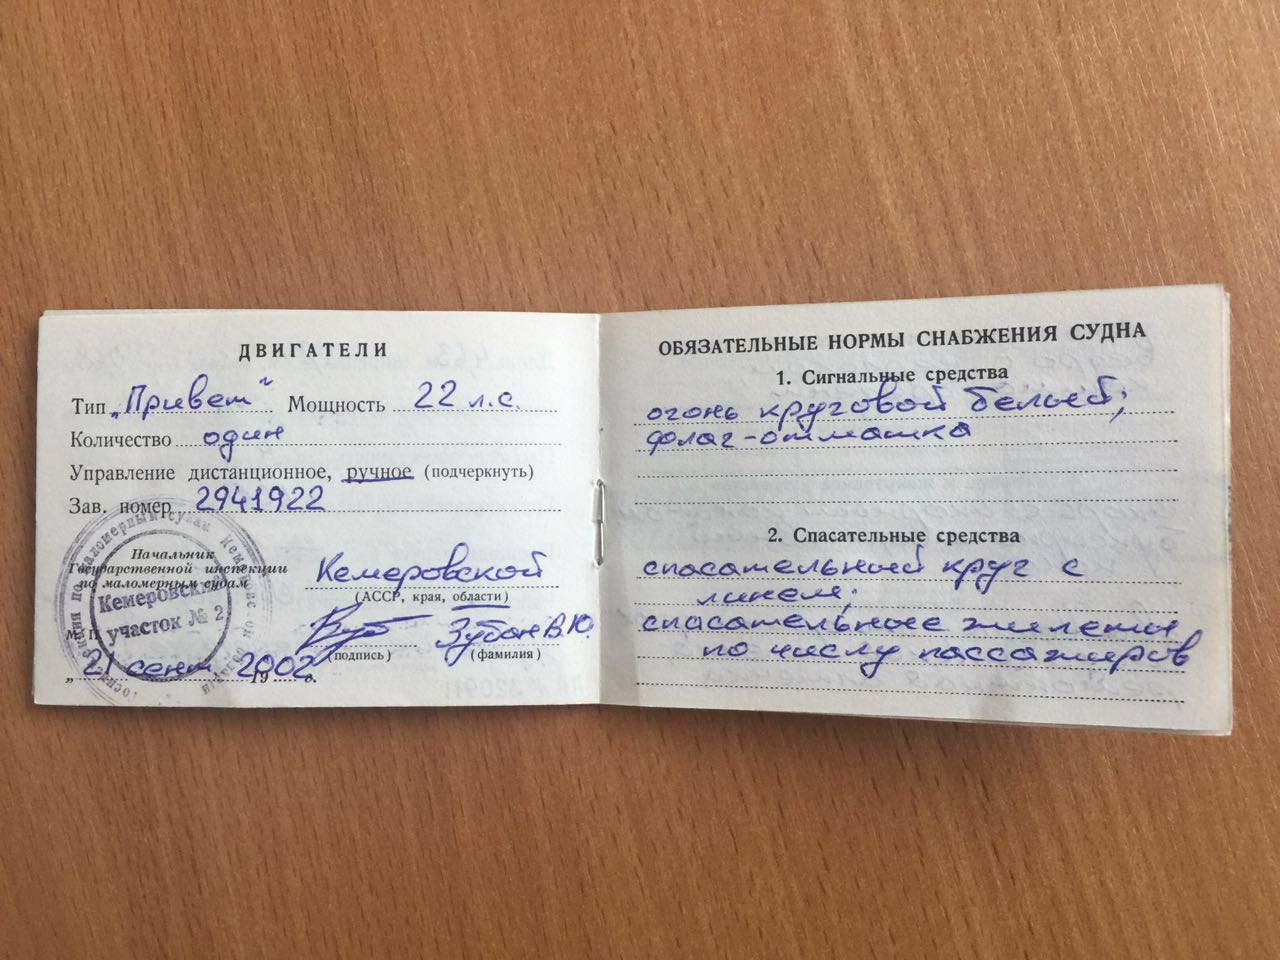 ДВИГАТЕЛИ
Тип „Привет" Мощность 22 л.с.
Количество один
Управление дистанционное, ручное (подчеркнуть)
Зав. номер 2941922
Начальник
Государственной инспекции
по маломерным судам
Кемеровской
(АССР, края, области)
Кемеровский
участок № 2
М. П.
Зубан В.Ю.
(подпись) (фамилия)
„21 сент. 2002 19 г.
ОБЯЗАТЕЛЬНЫЕ НОРМЫ СНАБЖЕНИЯ СУДНА
1. Сигнальные средства
огонь круговой белый;
флаг-отмашка
2. Спасательные средства
спасательный круг с
линем;
спасательные жилеты
по числу пассажиров